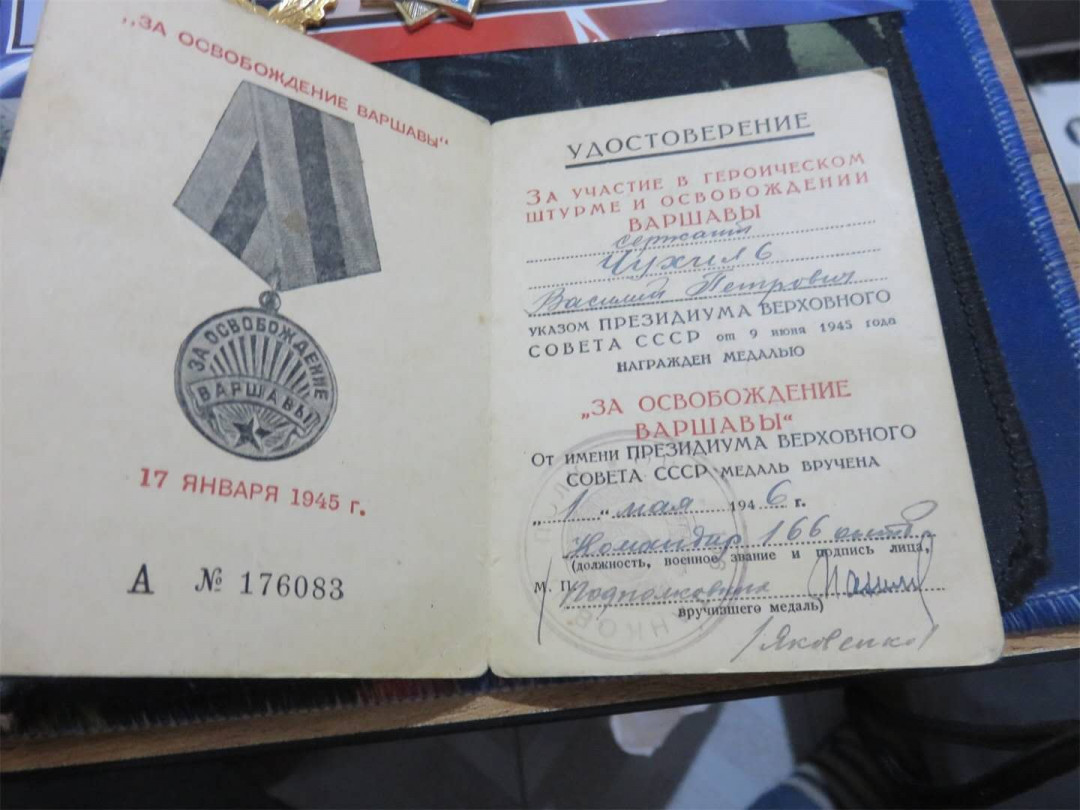 „ЗА ОСВОБОЖДЕНИЕ ВАРШАВЫ“
ЗА ОСВОБОЖДЕНИЕ
ВАРШАВЫ
17 ЯНВАРЯ 1945 г.
А № 176083
УДОСТОВЕРЕНИЕ
ЗА УЧАСТИЕ В ГЕРОИЧЕСКОМ
ШТУРМЕ И ОСВОБОЖДЕНИИ
ВАРШАВЫ
сержант
Василий Петрович
УКАЗОМ ПРЕЗИДИУМА ВЕРХОВНОГО
СОВЕТА СССР от 9 июня 1945 года
НАГРАЖДЕН МЕДАЛЬЮ
„ЗА ОСВОБОЖДЕНИЕ
ВАРШАВЫ“
ОТ ИМЕНИ ПРЕЗИДИУМА ВЕРХОВНОГО
СОВЕТА СССР МЕДАЛЬ ВРУЧЕНА
„1“ мая 1946 г.
Командир 166
(должность, военное звание и подпись лица,
М. П. Подполковник
вручившего медаль)
/Яковенко/